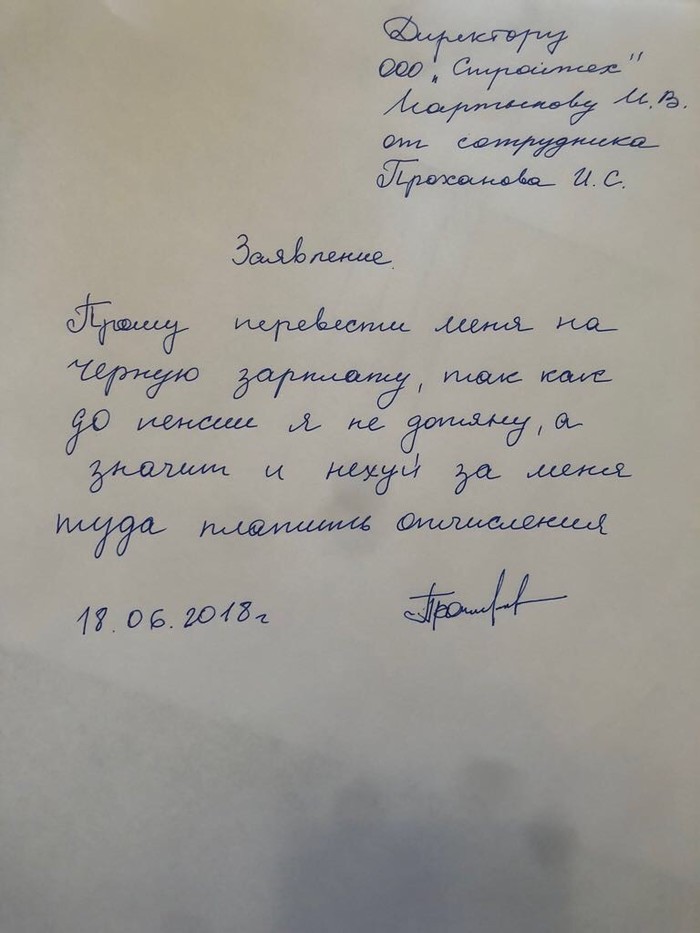 Директору
ООО „Строймех"
Мартынову И.В.
от сотрудника
Проханова И.С.
Заявление.
Прошу перевести меня на
черную зарплату, так как
до пенсии я не дотяну, а
значит и нехуй за меня
туда платить отчисления
18.06.2018г